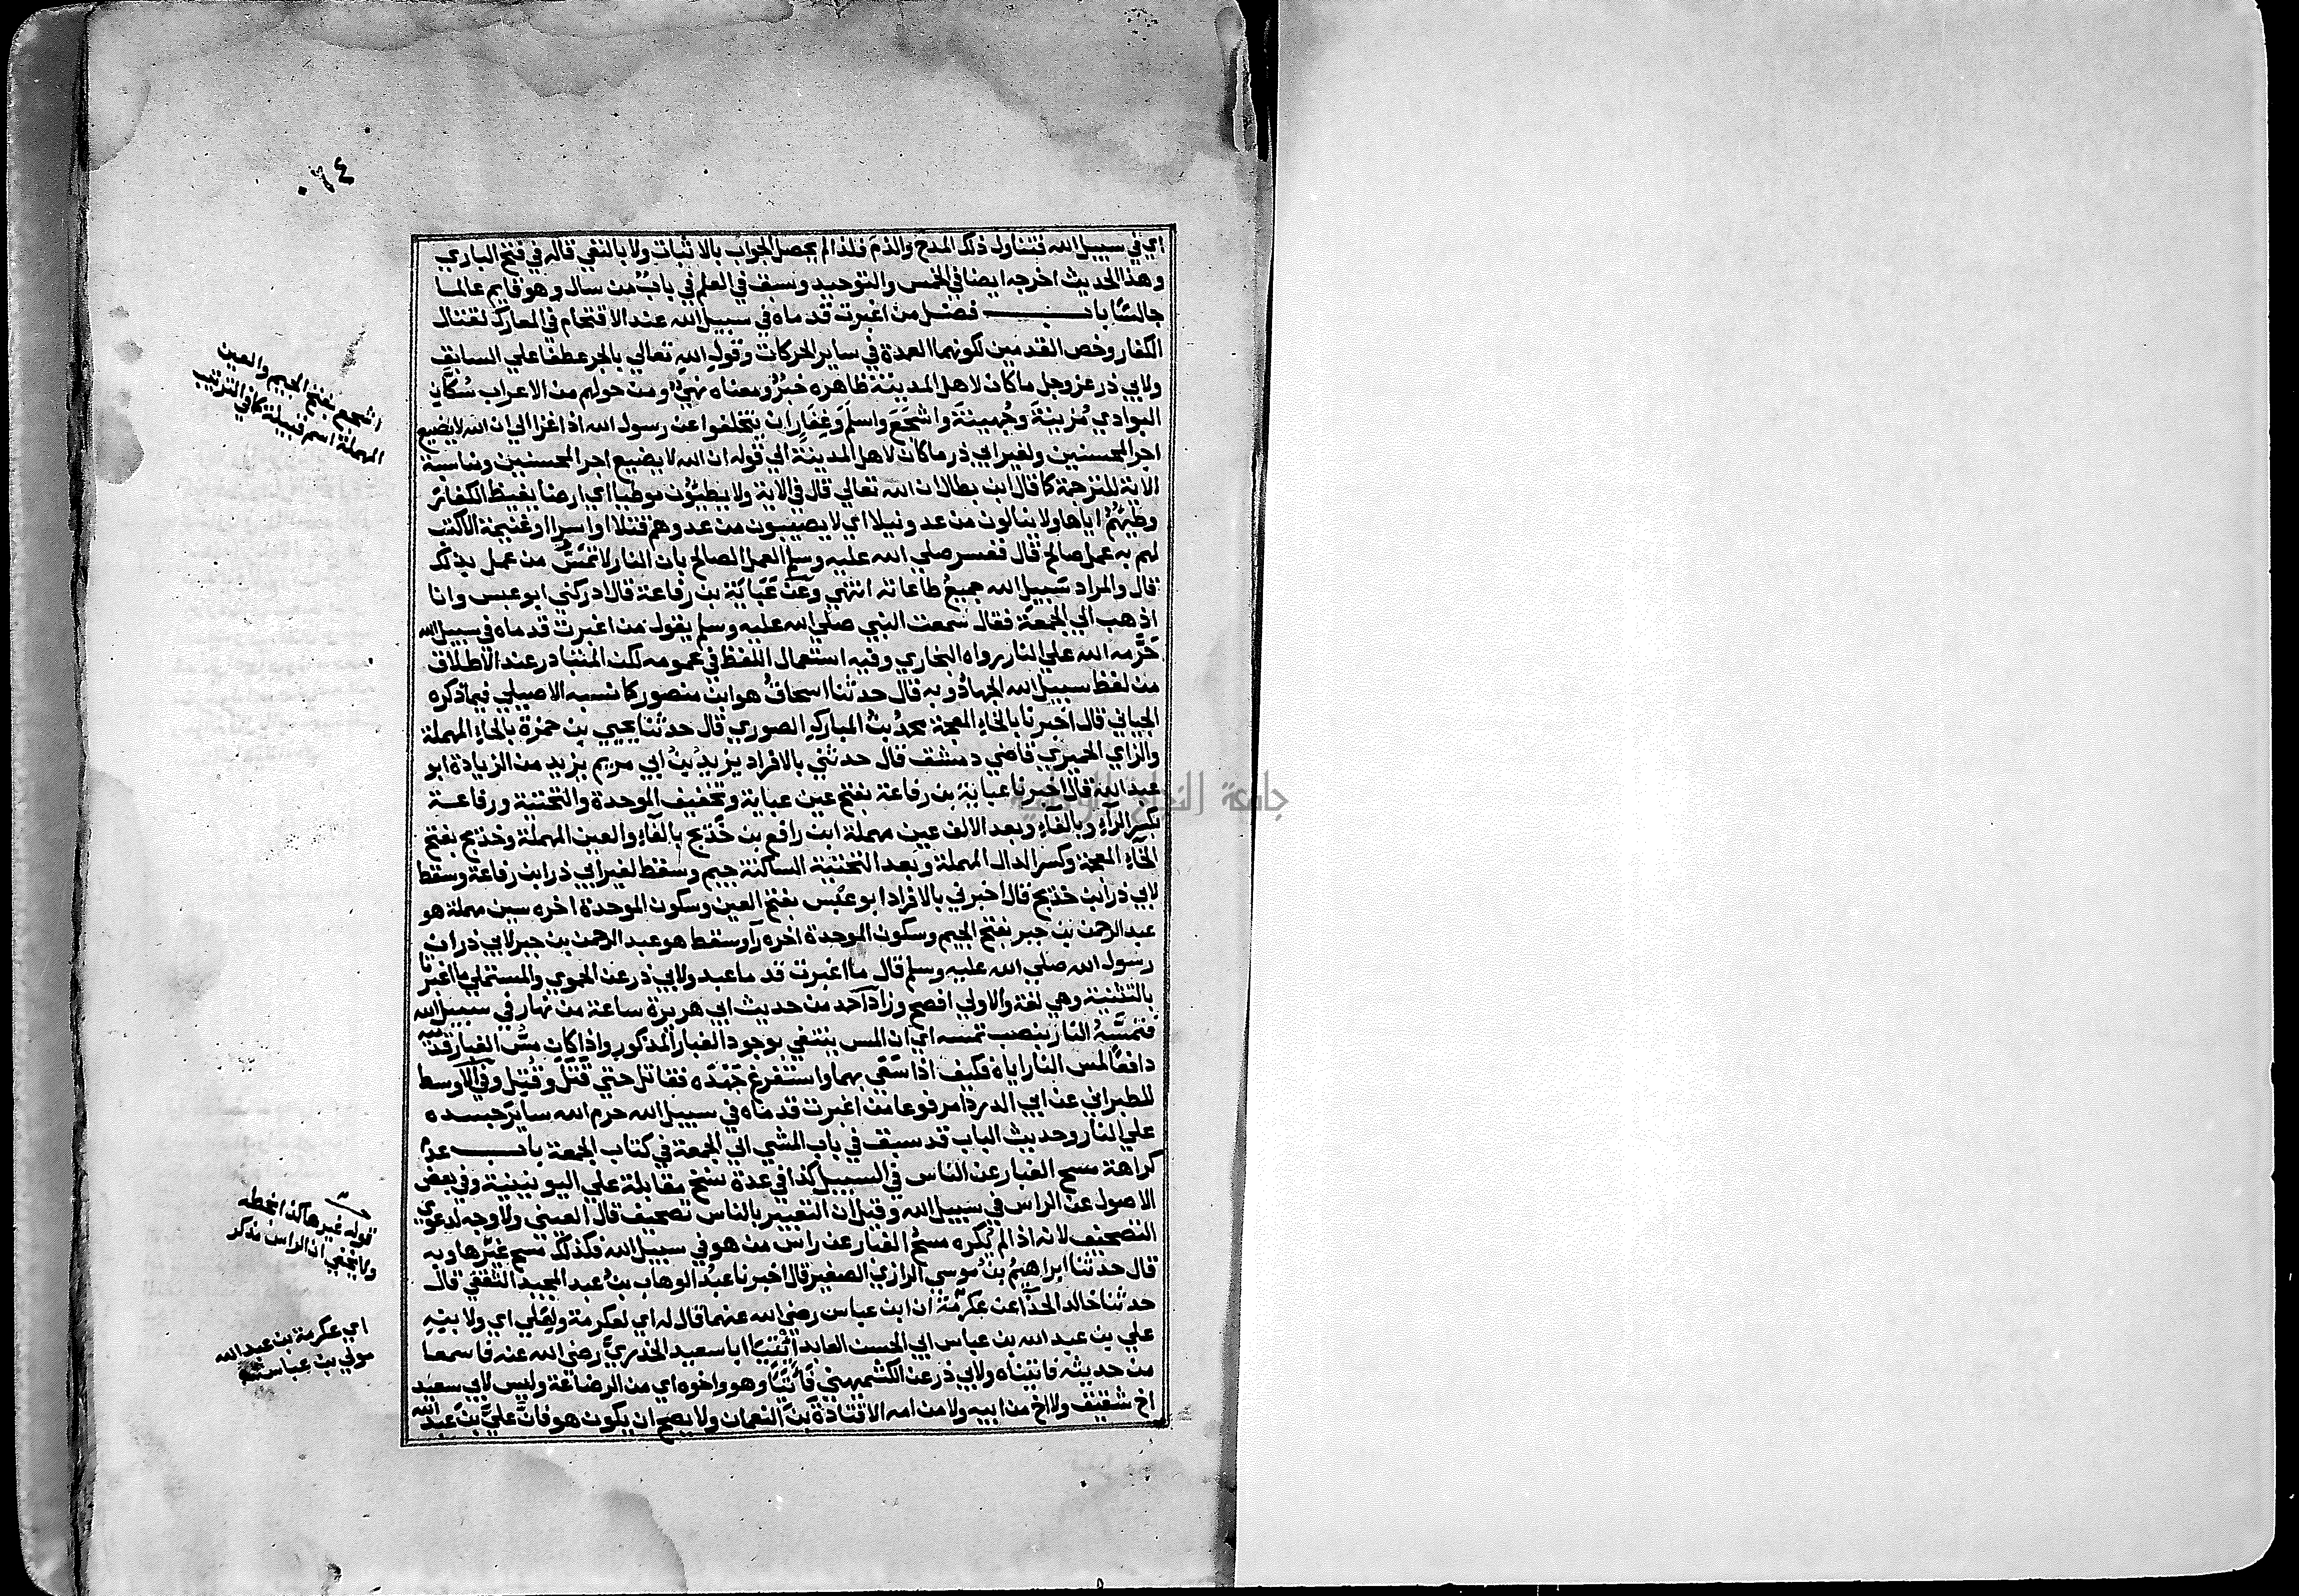 ٠١٤
اي في سبيل الله فتناول ذلك المدح والذم فلذا لم يحصل الجواب بالاثبات ولا بالنفي قاله في فتح الباري
وهذا الحديث اخرجه ايضا في الخمس والتوحيد وسبق في العلم في باب من سال وهو قايم عالما
جالسًا باب فضل من اغبرت قدماه في سبيل الله عند الاقتحام في المعارك لقتال
الكفار وخص القدمين لكونهما العمدة في ساير الحركات وقول الله تعالي بالجر عطفا علي السابق
ولابي ذر عز وجل ما كان لاهل المدينة ظاهره خبر ومعناه نهي ومن حولهم من الاعراب سُكّان
البوادي مُزينةَ وجُهينةَ واشجَعَ واسلَمَ وغِفَارٍ ان يتخلفوا عن رسول الله اذا غزا الي ان الله لا يضيع
اجر المحسنين ولغير ابي ذر ما كان لاهل المدينة الي قوله ان الله لا يضيع اجر المحسنين ومناسبة
الاية للترجمة كما قال ابن بطال ان الله تعالي قال في الاية ولا يطئون موطيا اي ارضا يغيظ الكفار
وطيُهُمْ اياها ولا ينالون من عدو نيلا اي لا يصيبون من عدوهم قتلا او اسرا او غنيمة الا كتب
لهم به عمل صالح قال ففسر صلي الله عليه وسلم العمل الصالح بان النار لا تمَسُّ من عمل بذلك
قال والمراد سَبيل الله جميعُ طاعاته انتهي وعَن عَبَايَة بن رفاعة قال ادركني ابو عبس وانا
اذهب الي الجمعة فقال سمعت النبي صلي الله عليه وسلم يقول من اغبرت قدماه في سبيل الله
حَرَّمه الله علي النار رواه البخاري وفيه استعمال اللفظ في عمومه لكن المتبادر عند الاطلاق
من لفظ سبيل الله الجهادُ وبه قال حدثنا اسحاقُ هو ابن منصور كما نسبه الاصيلي فيما ذكره
الجياني قال اخبرنا بالخاءِ المعجمة محمدُ بنُ المباركِ الصوري قال حدثنا يحيي بن حمزة بالحاءِ المهملة
والزاي الحميري قاضي دمشق قال حدثني بالافراد يزيدُ بنُ ابي مريم يزيد من الزيادة ابو
عبد الله قال اخبرنا عباية بن رفاعة بفتح عين عباية وتخفيف الموحدة والتحتية ورفاعة
بكسر الراءِ وبالفاءِ وبعد الالف عين مهملة ابن رافع بن خَديج بالفاءِ والعين المهملة وخديج بفتح
الخاءِ المعجمة وكسر الدال المهملة وبعد التحتية الساكنة جيم وسقط لغير ابي ذر ابن رفاعة وسقط
لابي ذر ابن خديج قال اخبرني بالافراد ابو عَبْس بفتح العين وسكون الموحدة اخره سين مهملة هو
عبد الرحمن بن جبر بفتح الجيم وسكون الموحدة اخره رآ وسقط هو عبد الرحمن بن جبر لابي ذر ان
رسول الله صلي الله عليه وسلم قال ما اغبرت قدما عبد ولابي ذر عن الحموي والمستملي ما اغبرتا
بالتثنية وهي لغة والاولي افصح وزاد احمد من حديث ابي هريرة ساعة من نهار في سبيل الله
فتمسَّهُ النار بنصب تمسه اي ان المس ينتفي بوجود الغبار المذكور واذا كان مسُّ الغبار قدميه
دافعًا لمس النار اياه فكيف اذا سَعَي بهما واستفرغ جَهْدَه فقاتل حتي قَتَل وقُتِل وفي الاوسط
للطبراني عن ابي الدردا مرفوعا من اغبرت قدماه في سبيل الله حرم الله ساير جسده
علي النار وحديث الباب قد سبق في باب المشي الي الجمعة في كتاب الجمعة باب عدم
كراهة مسح الغبار عن الناس في السبيل كذا في عدة نسخ مقابلة علي اليونينية وفي بعض
الاصول عن الراس في سبيل الله وقيل ان التعبير بالناس تصحيف قال العيني ولا وجه لدعوي
التصحيف لانه اذا لم يُكره مسحُ الغبار عن راس من هو في سبيل الله فكذلك مسح غيرها وبه
قال حدثنا ابراهيمُ بنُ موسي الرازي الصغير قال اخبرنا عبدُ الوهاب بنُ عبد المجيد الثقفي قال
حدثنا خالد الحذآ عن عكرمة ان ابن عباس رضي الله عنهما قال له اي لعكرمة ولعَلي اي ولابنِهِ
علي بن عبد الله بن عباس ابي الحسن العابد ائتِيَا ابا سعيد الخدريَّ رضي الله عنه فاسمعا
من حديثه فاتيناه ولابي ذر عن الكشميهني فَاَتَيَا وهو واخوه اي من الرضاعة وليس لابي سعيد
اخ شقيق ولا اخ من ابيه ولا من امه الا قتادة بن النعمان ولا يصح ان يكون هو فانَّ عليَّ بنَ عبد الله
اشجع بفتح الجيم والعين
المهملة اسم قبيلة كما في الترتيب
قوله غيرها كذا بخطه
ولا يخفي ان الراس مذكر
اي عكرمة بن عبد الله
مولي بن عباس
جامعة النجاح الوطنية